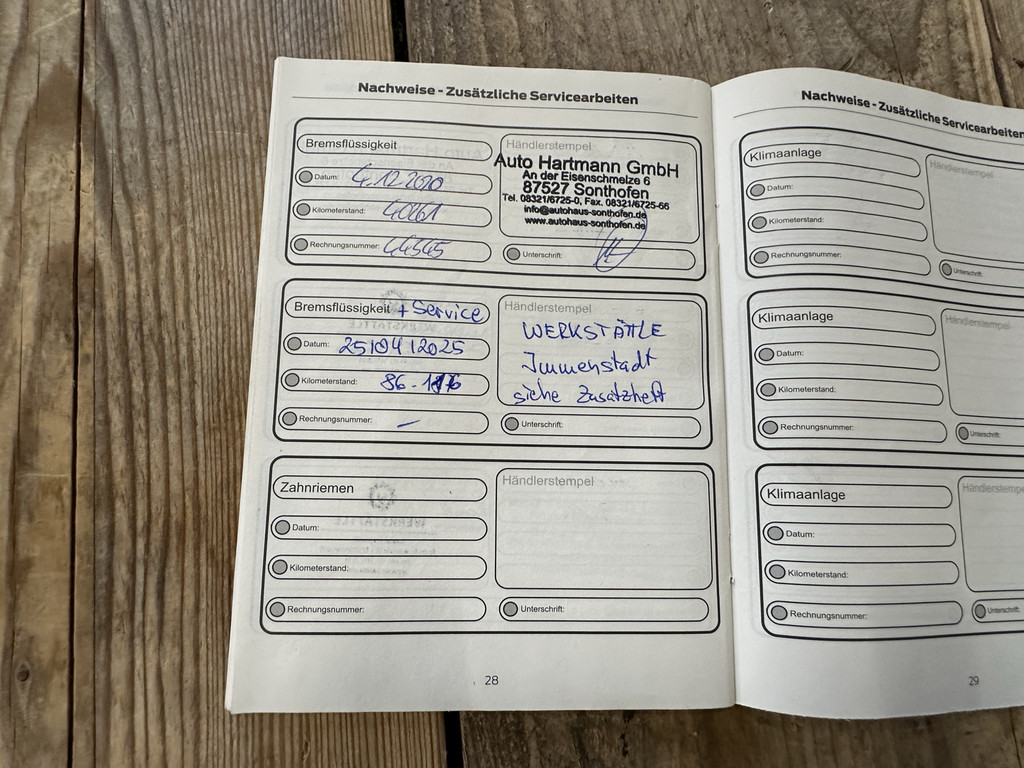 Nachweise - Zusätzliche Servicearbeiten
Bremsflüssigkeit
Datum: 4.12.2020
Kilometerstand:
Rechnungsnummer: 44545
Händlerstempel
Auto Hartmann GmbH
An der Eisenschmelze 6
87527 Sonthofen
Tel. 08321/6725-0, Fax. 08321/6725-66
info@autohaus-sonthofen.de
www.autohaus-sonthofen.de
Unterschrift:
Bremsflüssigkeit + Service
Datum: 25/04/2025
Kilometerstand:
Rechnungsnummer: –
Händlerstempel
WERKSTÄTTLE
Immenstadt
siehe Zusatzheft
Unterschrift:
Zahnriemen
Datum:
Kilometerstand:
Rechnungsnummer:
Händlerstempel
Unterschrift:
28
Nachweise - Zusätzliche Servicearbeiten
Klimaanlage
Datum:
Kilometerstand:
Rechnungsnummer:
Händlerstempel
Unterschrift:
Klimaanlage
Datum:
Kilometerstand:
Rechnungsnummer:
Händlerstempel
Unterschrift:
Klimaanlage
Datum:
Kilometerstand:
Rechnungsnummer:
Händlerstempel
Unterschrift:
29